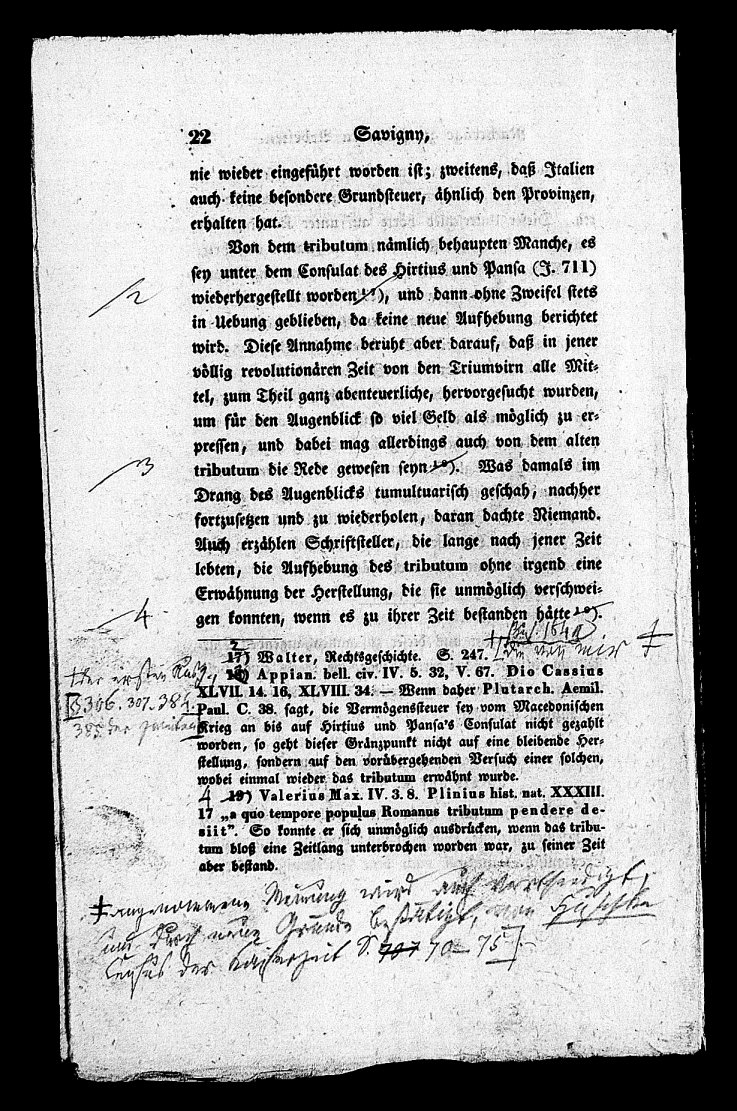 22 Savigny,
nie wieder eingeführt worden ist; zweitens, daß Italien
auch keine besondere Grundsteuer, ähnlich den Provinzen,
erhalten hat.
Von dem tributum nämlich behaupten Manche, es
sey unter dem Consulat des Hirtius und Pansa (J. 711)
2
wiederhergestellt worden 17), und dann ohne Zweifel stets
in Uebung geblieben, da keine neue Aufhebung berichtet
wird. Diese Annahme beruht aber darauf, daß in jener
völlig revolutionären Zeit von den Triumvirn alle Mit-
tel, zum Theil ganz abenteuerliche, hervorgesucht wurden,
um für den Augenblick so viel Geld als möglich zu er-
pressen, und dabei mag allerdings auch von dem alten
3
tributum die Rede gewesen seyn 18). Was damals im
Drang des Augenblicks tumultuarisch geschah, nachher
fortzusetzen und zu wiederholen, daran dachte Niemand.
Auch erzählen Schriftsteller, die lange nach jener Zeit
lebten, die Aufhebung des tributum ohne irgend eine
Erwähnung der Herstellung, die sie unmöglich verschwei-
4
gen konnten, wenn es zu ihrer Zeit bestanden hätte 19).
2
17) Walter, Rechtsgeschichte. S. 247. [die von mir
der ersten Ausg.,
§ 306. 307. 384.
385 der zweiten
18) Appian. bell. civ. IV. 5. 32, V. 67. Dio Cassius
XLVII. 14. 16, XLVIII. 34. — Wenn daher Plutarch. Aemil.
Paul. C. 38. sagt, die Vermögenssteuer sey vom Macedonischen
Krieg an bis auf Hirtius und Pansa's Consulat nicht gezahlt
worden, so geht dieser Gränzpunkt nicht auf eine bleibende Her-
stellung, sondern auf den vorübergehenden Versuch einer solchen,
wobei einmal wieder das tributum erwähnt wurde.
4 19) Valerius Max. IV. 3. 8. Plinius hist. nat. XXXIII.
17 „a quo tempore populus Romanus tributum pendere de-
siit". So konnte er sich unmöglich ausdrücken, wenn das tribu-
tum bloß eine Zeitlang unterbrochen worden war, zu seiner Zeit
aber bestand.
angenommene Meinung wird auch vertheidigt,
und durch neue Gründe bestätigt, von Huschke
Census der Kaiserzeit S. 70–75].